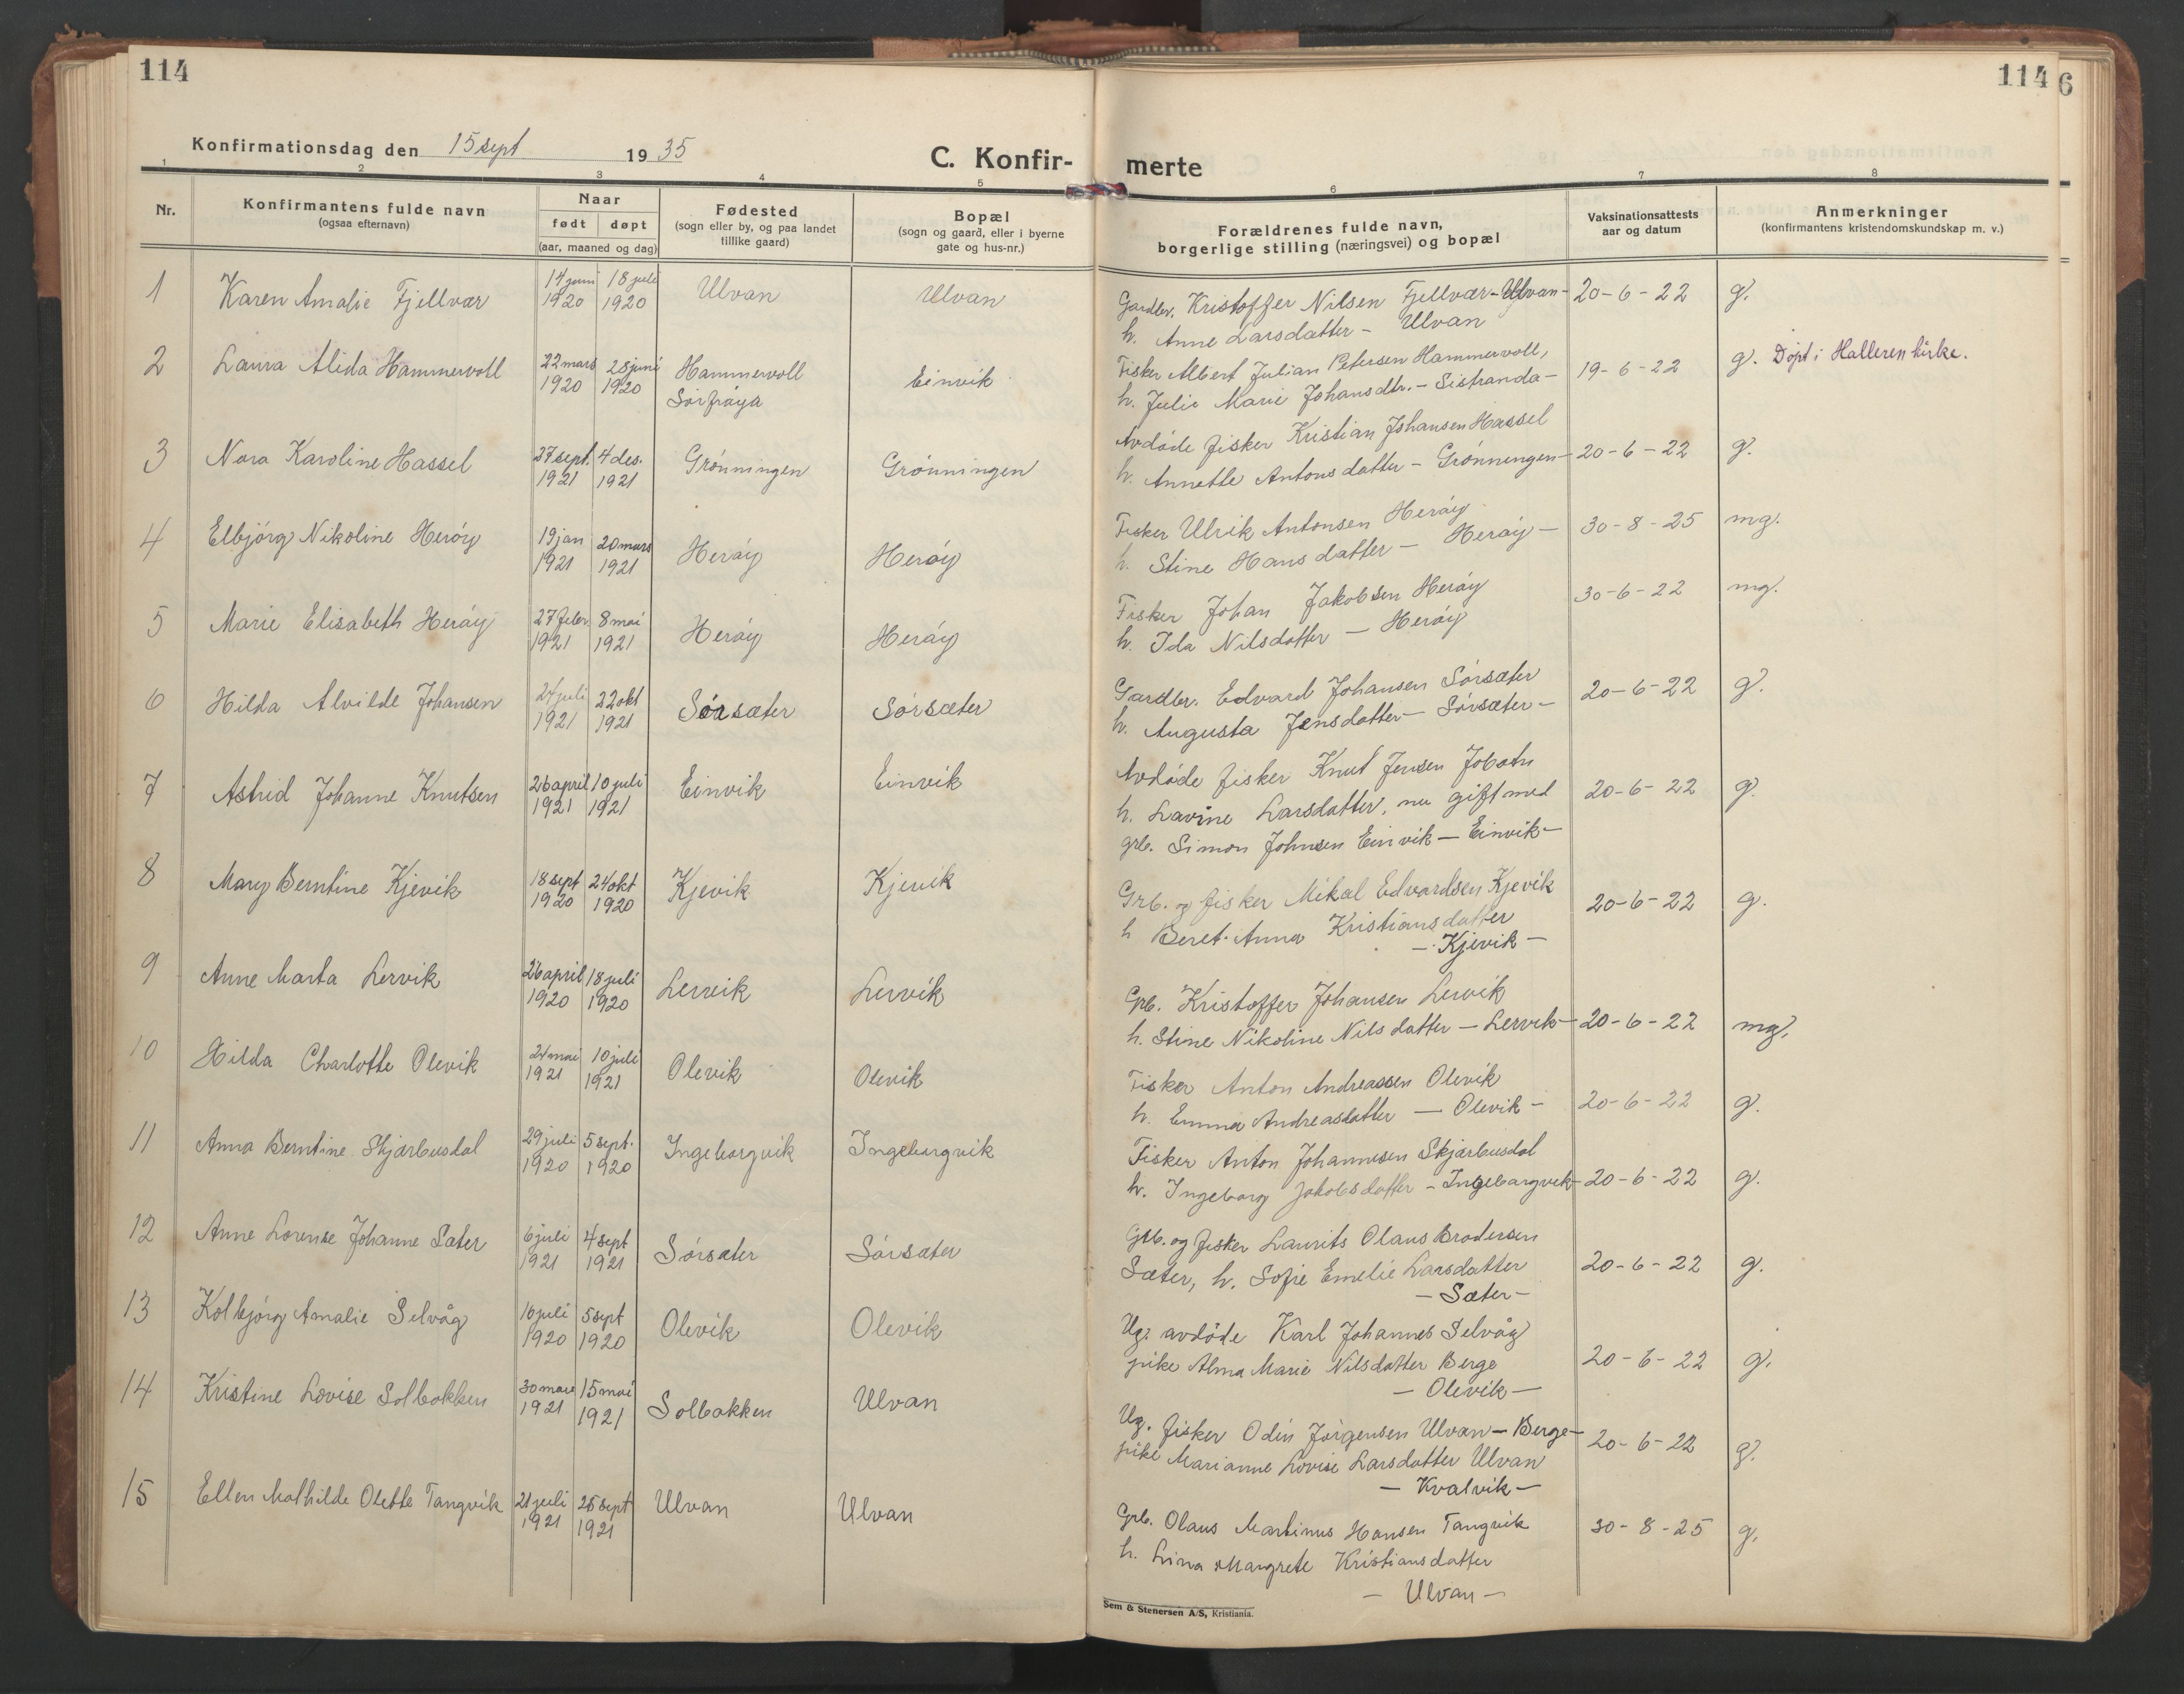 114
114 6
Konfirmationsdag den 15 sept 1935
C. Konfir- merte
1 2 3 4 5 6 7 8
Nr.
Konfirmantens fulde navn
(ogsaa efternavn)
Naar
født døpt
(aar, maaned og dag)
Fødested
(sogn eller by, og paa landet
tillike gaard)
Bopæl
(sogn og gaard, eller i byerne
gate og hus-nr.)
Forældrenes fulde navn,
borgerlige stilling (næringsvei) og bopæl
Vaksinationsattests
aar og datum
Anmerkninger
(konfirmantens kristendomskundskap m. v.)
1 Karen Amalie Fjellvær 14 juni 1920 18 juli 1920 Ulvan Ulvan
Gardbr. Kristoffer Nilsen Fjellvær - Ulvan - 20-6-22 g.
h. Anne Larsdatter - Ulvan
2 Laura Alida Hammervoll 22 mars 1920 28 juni 1920 Hammervoll Sørfrøya Einvik
Fisker Albert Julian Petersen Hammervoll,
h. Julie Marie Johansdtr. - Sistranda - 19-6-22 g. Døpt i Halleren kirke.
3 Nora Karoline Hassel 27 sept. 1921 4 des. 1921 Grønningen Grønningen
Avdøde fisker Kristian Johansen Hassel
h. Annette Antonsdatter - Grønningen - 20-6-22 g.
4 Elbjørg Nikoline Herøy 19 jan 1921 20 mars 1921 Herøy Herøy
Fisker Ulrik Antonsen Herøy
h. Stine Hansdatter - Herøy - 30-8-25 mg.
5 Marie Elisabeth Herøy 27 febr. 1921 8 mai 1921 Herøy Herøy
Fisker Johan Jakobsen Herøy
h. Ida Nilsdatter - Herøy 30-6-22 mg.
6 Hilda Alvilde Johansen 24 juli 1921 22 okt 1921 Sørsæter Sørsæter
Gardbr. Edvard Johansen Sørsæter
h. Augusta Jensdatter - Sørsæter - 20-6-22 g.
7 Astrid Johanne Knutsen 26 april 1921 10 juli 1921 Einvik Einvik
Avdøde fisker Knut Jensen
h. Lavine Larsdatter, nu gift med 20-6-22 g.
grb. Simon Johnsen Einvik - Einvik -
8 Mary Berntine Kjevik 18 sept 1920 24 okt 1920 Kjevik Kjevik
Grb. og fisker Mikal Edvardsen Kjevik
h Beret-Anna Kristiansdatter 20-6-22 g.
- Kjevik -
9 Anne Marta Lervik 26 april 1920 18 juli 1920 Lervik Lervik
Grb. Kristoffer Johansen Lervik
h. Stine Nikoline Nilsdatter - Lervik - 20-6-22 mg.
10 Hilda Charlotte Olevik 24 mai 1921 10 juli 1921 Olevik Olevik
Fisker Anton Andreassen Olevik
h. Emma Andreasdatter - Olevik - 20-6-22 g.
11 Anna Berntine Skjærbusdal 29 juli 1920 5 sept. 1920 Ingeborgvik Ingeborgvik
Fisker Anton Johannesen Skjærbusdal
h. Ingeborg Jakobsdatter - Ingeborgvik - 20-6-22 g.
12 Anne Lorense Johanne Sæter 6 juli 1921 4 sept 1921 Sørsæter Sørsæter
Grb. og fisker Laurits Olaus Brodersen
Sæter, h. Sofie Emelie Larsdatter 20-6-22 g.
- Sæter -
13 Kolbjørg Amalie Selvåg 16 juli 1920 5 sept 1920 Olevik Olevik
Ug. avdøde Karl Johannes Selvåg
pike Alma Marie Nilsdatter Berge 20-6-22 g.
- Olevik -
14 Kristine Lovise Solbakken 30 mars 1921 15 mai 1921 Solbakken Ulvan
Ug. fisker Odin Jørgensen Ulvan - Berge -
pike Marianne Lovise Larsdatter Ulvan 20-6-22 g.
- Kvalvik -
15 Ellen Mathilde Olette Tangvik 21 juli 1921 25 sept 1921 Ulvan Ulvan
Grb. Olaus Martinus Hansen Tangvik 30-8-25 g.
h. Lina Margrete Kristiansdatter
- Ulvan -
Sem & Stenersen A/S, Kristiania.